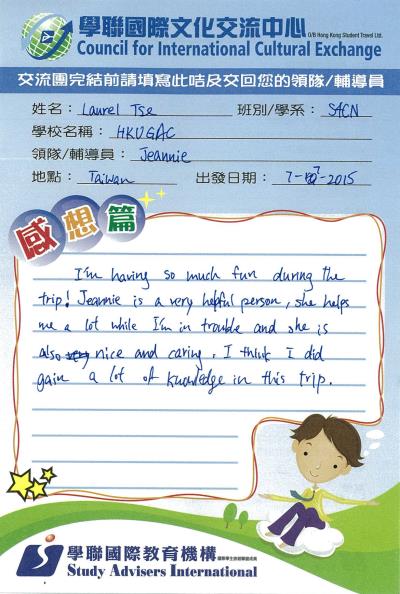 學聯國際文化交流中心 O/B Hong Kong Student Travel Ltd.
Council for International Cultural Exchange
交流團完結前請填寫此咭及交回您的領隊/輔導員
姓名： Laurel Tse 班別/學系： S4CN
學校名稱： HKUGAC
領隊/輔導員： Jeannie
地點： Taiwan 出發日期： 7-7-2015
感想篇
I'm having so much fun during the
trip! Jeannie is a very helpful person, she helps
me a lot while I'm in trouble and she is
also nice and caring. I think I did
gain a lot of knowledge in this trip.
學聯國際教育機構
Study Advisers International